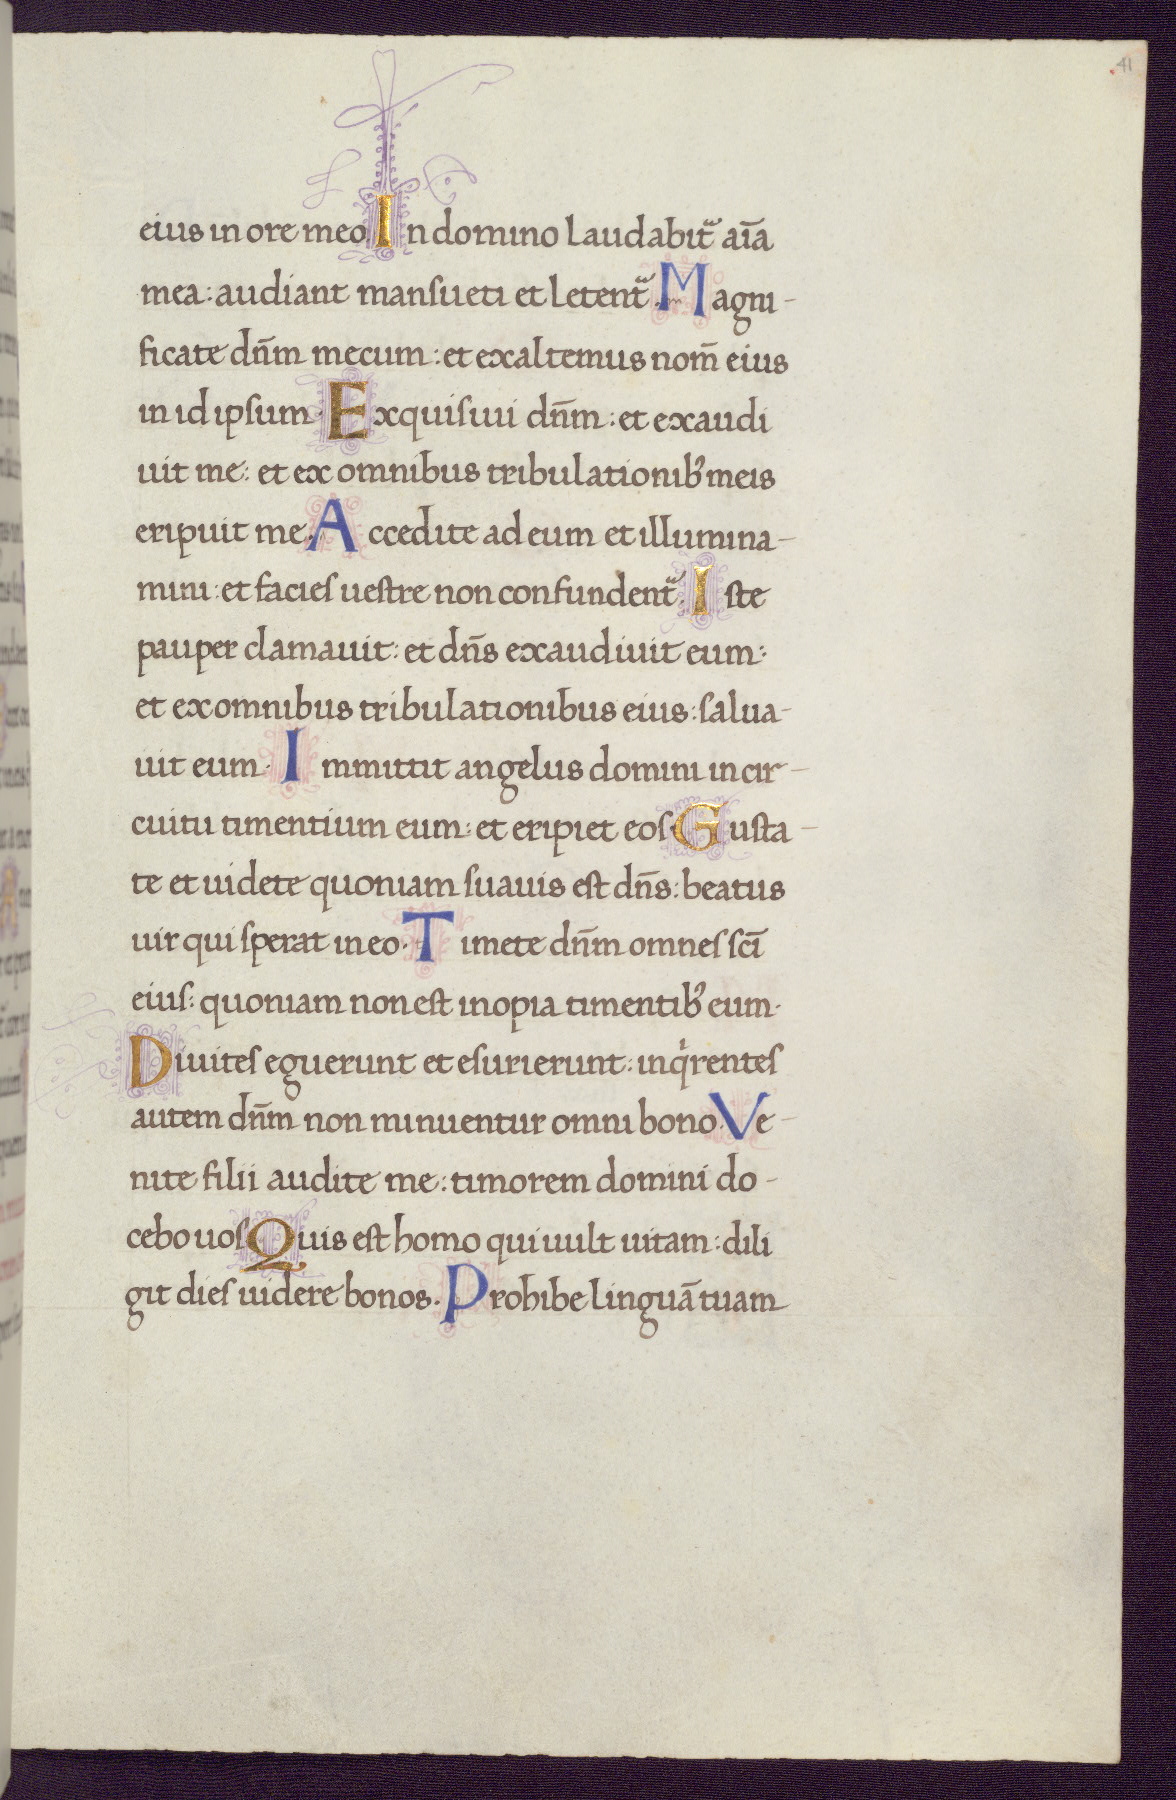 41
eius in ore meo In domino laudabitᷓ aīa
mea: audiant mansueti et letentᷓ. Magni-
ficate dn̄m mecum: et exaltemus nom̄ eius
in id ipsum. Exquisiui dn̄m: et exaudi
uit me: et ex omnibus tribulationib᾽ meis
eripuit me. Accedite ad eum et illumina-
mini: et facieſ ueſtre non confundentᷓ. Iſte
pauper clamauit: et dn̄s exaudiuit eum:
et ex omnibus tribulationibus eius: ſalua-
uit eum. Immittit angelus domini in cir-
cuitu timentium eum: et eripiet eoſ. Guſta-
te et uidete quoniam ſuauis eſt dn̄s: beatus
uir qui ſperat in eo. Timete dn̄m omneſ ſcī
eiuſ: quoniam non eſt inopia timentib᾽ eum.
Diuiteſ eguerunt et eſurierunt: inqͥrenteſ
autem dn̄m non minuentur omni bono. Ve-
nite filii audite me: timorem domini do-
cebo uoſ Quis eſt homo qui uult uitam: dili
git dieſ uidere bonos. Prohibe linguā tuam